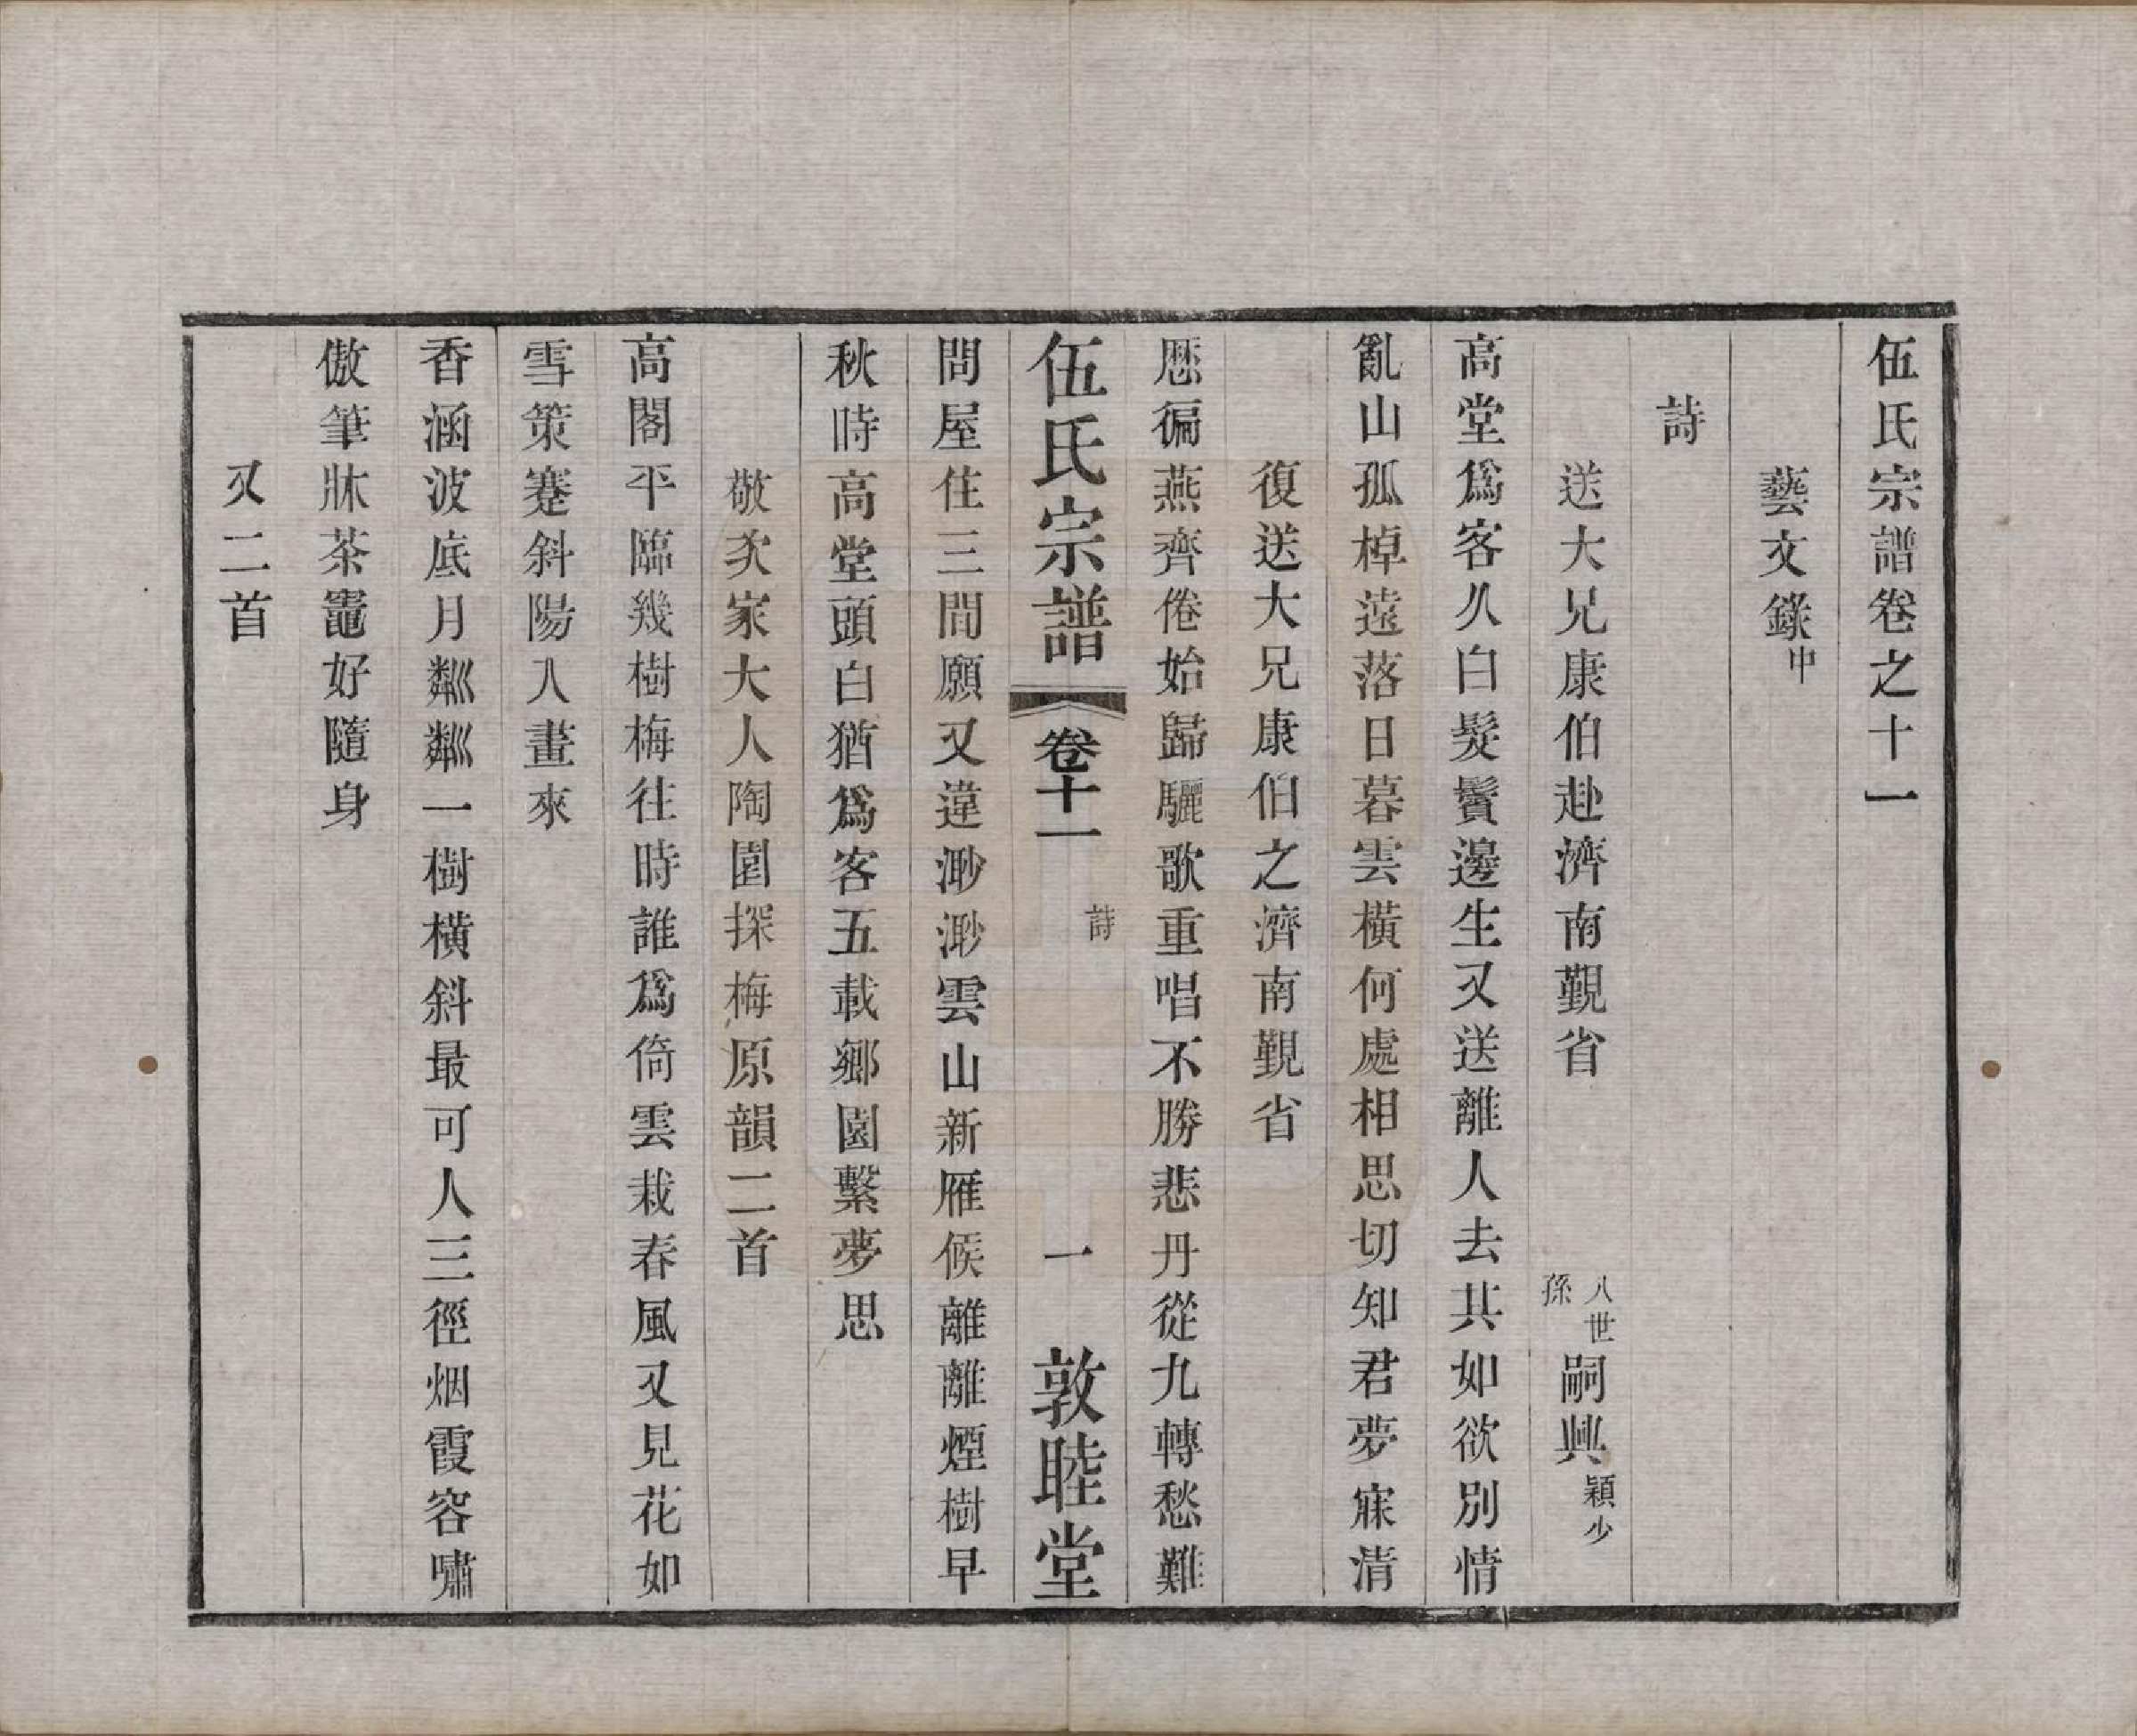 伍氏宗譜卷之十一
藝文錄中
詩
送大兄康伯赴濟南覲省 八世孫嗣興穎少
高堂爲客久白髮鬢邊生又送離人去其如欲別情
亂山孤棹遠落日暮雲橫何處相思切知君夢寐清
復送大兄康伯之濟南覲省
歴徧燕齊倦始歸驪歌重唱不勝悲丹從九轉愁難
伍氏宗譜 卷十一 詩 一 敦睦堂
問屋住三間願又違渺渺雲山新雁候離離煙樹早
秋時高堂頭白猶爲客五載鄉園繫夢思
敬次家大人陶園探梅原韻二首
高閣平臨幾樹梅往時誰爲倚雲栽春風又見花如
雪策蹇斜陽入畫來
香涵波底月粼粼一樹橫斜最可人三徑烟霞容嘯
傲筆牀茶竈好隨身
又二首